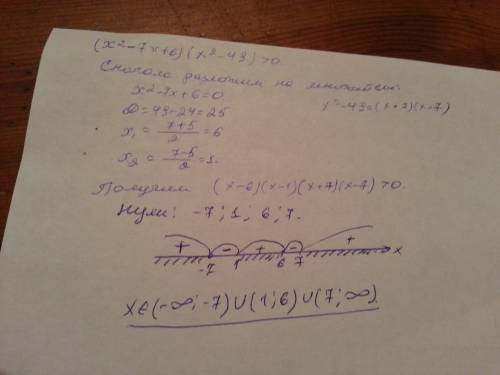 (x²-7x+6)(x²-49)>0
Сначала разложим на множители:
x²-7x+6=0
x²-49=(x+7)(x-7)
D=49-24=25
x₁=(7+5)/2=6
x₂=(7-5)/2=1.
Получим (x-6)(x-1)(x+7)(x-7)>0.
Нули: -7; 1; 6; 7.
+ - + - +
-7 1 6 7 x
x∈(-∞;-7)∪(1;6)∪(7;∞)